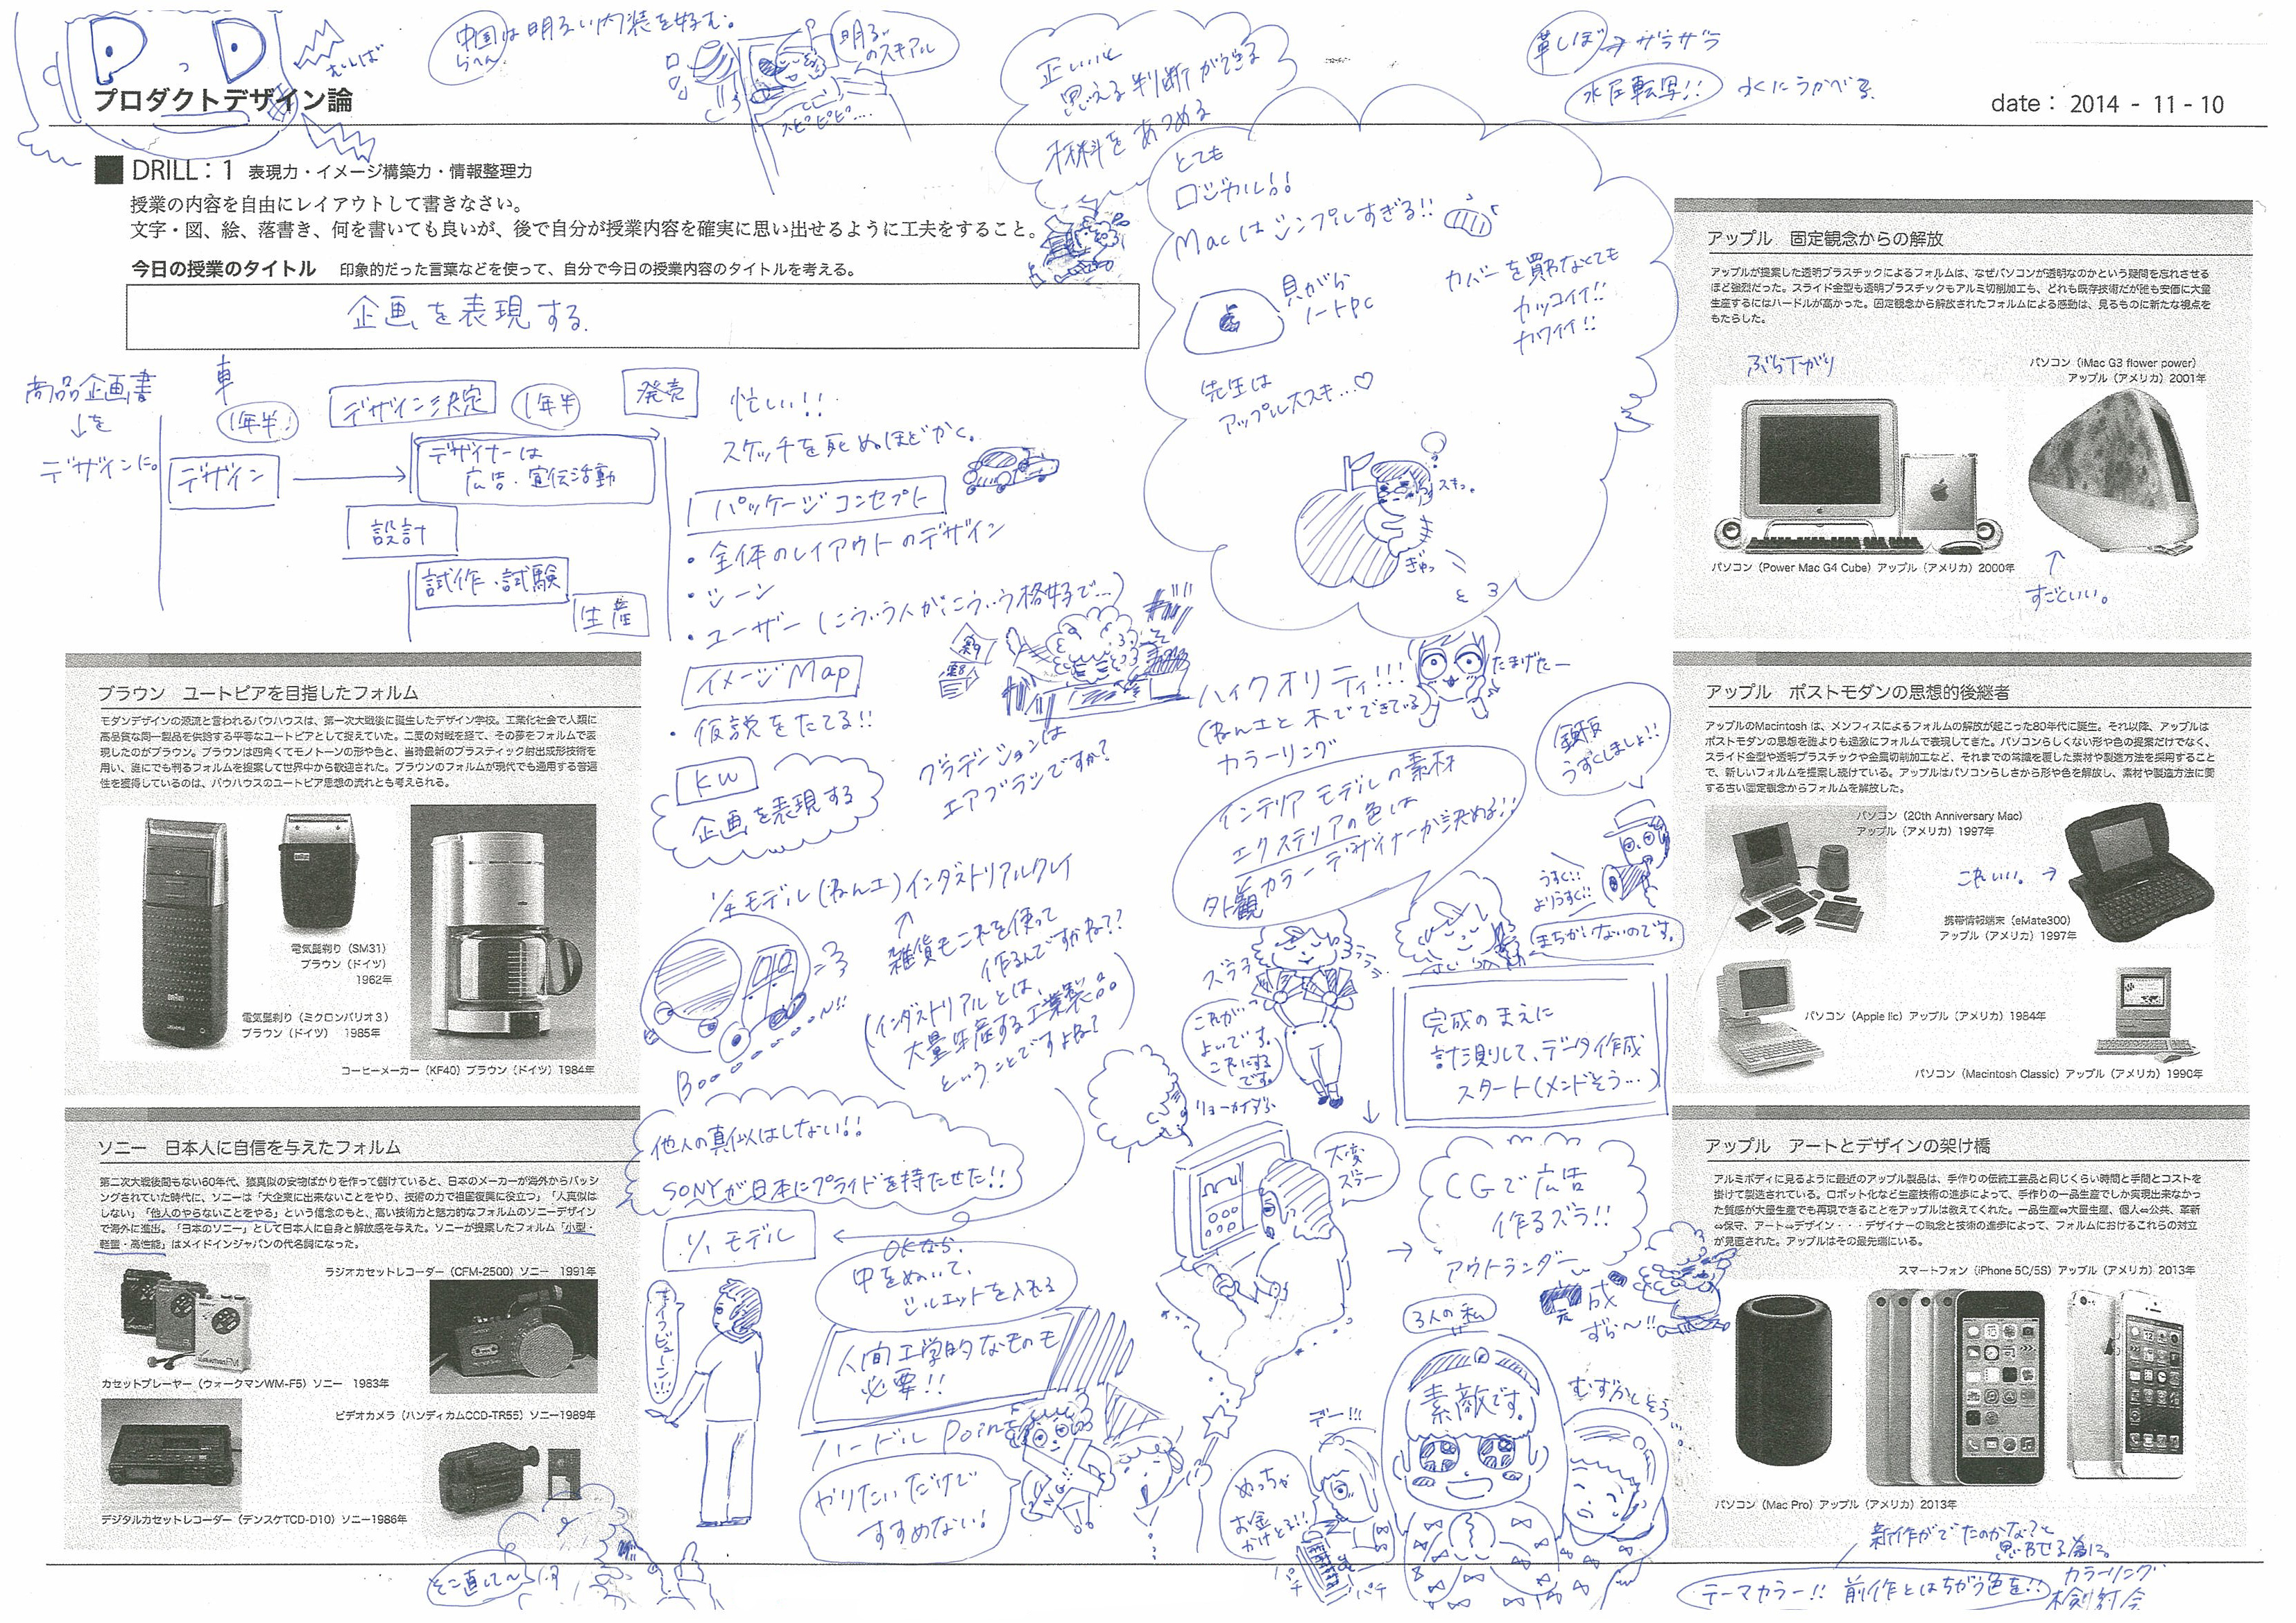 P D
むしば
中国は明るい内装を好む。
明るい
のスキアル
スピピピピ....
正しいと
思える判断ができる
材料をあつめる
革しぼ→ザラザラ
水圧転写!! 水にうかべる
プロダクトデザイン論
date : 2014 - 11 - 10
DRILL : 1 表現力・イメージ構築力・情報整理力
授業の内容を自由にレイアウトして書きなさい。
文字・図、絵、落書き、何を書いても良いが、後で自分が授業内容を確実に思い出せるように工夫をすること。
今日の授業のタイトル 印象的だった言葉などを使って、自分で今日の授業内容のタイトルを考える。
企画を表現する
商品企画書
↓を
デザインに。
車
1年半
デザイン決定
1年半
発売
デザイン
デザイナーは
広告・宣伝活動
設計
試作・試験
生産
忙しい!!
スケッチを死ぬほどかく。
パッケージコンセプト
・全体のレイアウトのデザイン
・シーン
・ユーザー(こういう人がこういう格好で...)
イメージMap
・仮説をたてる!!
KW
企画を表現する
グラデーションは
エアブラシですか?
とても
ロジカル!!
Macはシンプルすぎる!!
貝がら
ノートPC
カバーを買わなくても
カッコイイ!!
カワイイ!!
先生は
アップル大スキ...♡
スキっ。
ぎゅっ
ハイクオリティ!!!
(ねん土と木でできている)
カラーリング
たまげたー
インテリアモデルの素材
エクステリアの色は
外観カラーデザイナーが決める!!
鉄板
うすくしましょ!!
うすく!!
よりうすく!!
まちがいないのです。
1/4モデル(ねん土)インダストリアルクレイ
雑貨もこれを使って
作るんですかね??
(インダストリアルとは、
大量生産する工業製品
ということですよね?)
Booo
ズララ
これが
よいです。
これにする
です。
完成のまえに
計測りして、データ作成
スタート(メンドそう...)
他人の真似はしない!!
SONYが日本にプライドを持たせた!!
1/1モデル
OKなら、
中をぬいて、
シルエットを入れる
人間工学的なものも
必要!!
ハードルPoint
やりたいだけで
すすめない!
NG
大変
ズラー
CGで広告
作るズラ!!
アウトランダー
完成
ずら〜!!
3人の私
素敵です。
むずかしそう...
デー!!!
めっちゃ
お金
かけとる!!
パチ パチ
そこ直して〜
テーマカラー!! 前作とはちがう色を!!
新作がでたのかな?と
思わせる為に。
カラーリング
検討会
ブラウン ユートピアを目指したフォルム
モダンデザインの源流と言われるバウハウスは、第一次大戦後に誕生したデザイン学校。工業化社会で人類に
高品質な同一製品を供給する平等なユートピアとして捉えていた。二度の対戦を経て、その夢をフォルムで表
現したのがブラウン。ブラウンは四角くてモノトーンの形や色と、当時最新のプラスティック射出成形技術を
用い、誰にでも判るフォルムを提案して世界中から歓迎された。ブラウンのフォルムが現代でも通用する普遍
性を獲得しているのは、バウハウスのユートピア思想の流れとも考えられる。
電気髭剃り(SM31)
ブラウン(ドイツ)
1962年
電気髭剃り(ミクロンバリオ3)
ブラウン(ドイツ) 1985年
コーヒーメーカー(KF40)ブラウン(ドイツ)1984年
ソニー 日本人に自信を与えたフォルム
第二次大戦後間もない60年代、猿真似の安物ばかりを作って儲けていると、日本のメーカーが海外からバッシ
ングされていた時代に、ソニーは「大企業に出来ないことをやり、技術の力で祖国復興に役立つ」「人真似は
しない」「他人のやらないことをやる」という信念のもと、高い技術力と魅力的なフォルムのソニーデザイン
で海外に進出。「日本のソニー」として日本人に自身と解放感を与えた。ソニーが提案したフォルム「小型・
軽量・高性能」はメイドインジャパンの代名詞になった。
ラジオカセットレコーダー(CFM-2500)ソニー 1991年
カセットプレーヤー(ウォークマンWM-F5)ソニー 1983年
ビデオカメラ(ハンディカムCCD-TR55)ソニー1989年
デジタルカセットレコーダー(デンスケTCD-D10)ソニー1986年
アップル 固定観念からの解放
アップルが提案した透明プラスチックによるフォルムは、なぜパソコンが透明なのかという疑問を忘れさせる
ほど強烈だった。スライド金型も透明プラスチックもアルミ切削加工も、どれも既存技術だが誰も安価に大量
生産するにはハードルが高かった。固定観念から解放されたフォルムによる感動は、見るものに新たな視点を
もたらした。
ぶら下がり
パソコン(iMac G3 flower power)
アップル(アメリカ)2001年
パソコン(Power Mac G4 Cube)アップル(アメリカ)2000年
すごいい。
アップル ポストモダンの思想的後継者
アップルのMacintosh は、メンフィスによるフォルムの解放が起こった80年代に誕生。それ以降、アップルは
ポストモダンの思想を誰よりも過激にフォルムで表現してきた。パソコンらしくない形や色の提案だけでなく、
スライド金型や透明プラスチックや金属切削加工など、それまでの常識を覆した素材や製造方法を採用すること
で、新しいフォルムを提案し続けている。アップルはパソコンらしさから形や色を解放し、素材や製造方法に関
する古い固定観念からフォルムを解放した。
パソコン(20th Anniversary Mac)
アップル(アメリカ)1997年
これいい。→
携帯情報端末(eMate300)
アップル(アメリカ)1997年
パソコン(Apple IIc)アップル(アメリカ)1984年
パソコン(Macintosh Classic)アップル(アメリカ)1990年
アップル アートとデザインの架け橋
アルミボディに見るように最近のアップル製品は、手作りの伝統工芸品と同じくらい時間と手間とコストを
掛けて製造されている。ロボット化など生産技術の進歩によって、手作りの一品生産でしか実現出来なかっ
た質感が大量生産でも再現できることをアップルは教えてくれた。一品生産⇔大量生産、個人⇔公共、革新
⇔保守、アート⇔デザイン・・・デザイナーの執念と技術の進歩によって、フォルムにおけるこれらの対立
が見直された。アップルはその最先端にいる。
スマートフォン(iPhone 5C/5S)アップル(アメリカ)2013年
パソコン(Mac Pro)アップル(アメリカ)2013年